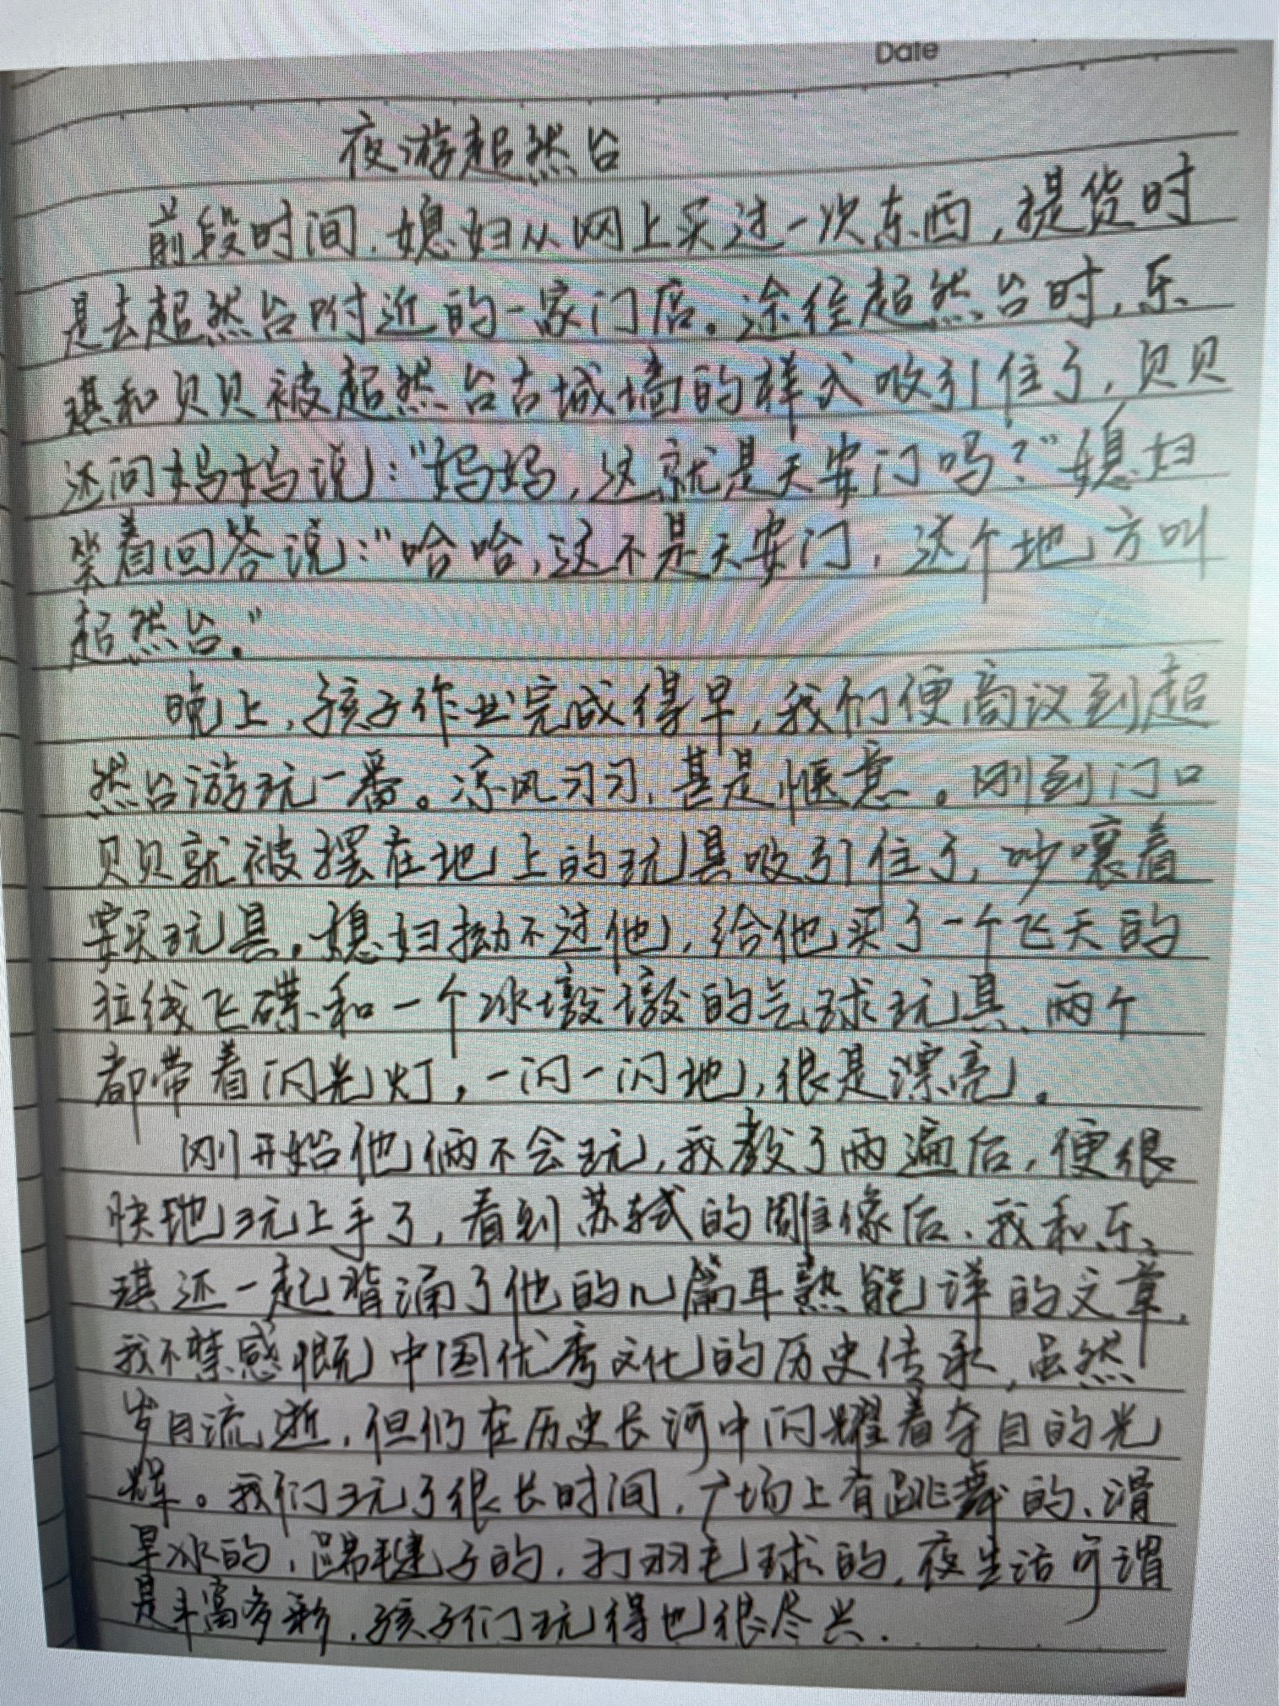 Date
夜游超然台
前段时间,媳妇从网上买过一次东西,提货时
是去超然台附近的一家门店。途径超然台时,乐
琪和贝贝被超然台古城墙的样式吸引住了,贝贝
还问妈妈说:“妈妈,这就是天安门吗?”媳妇
笑着回答说:“哈哈,这不是天安门,这个地方叫
超然台。”
晚上,孩子作业完成得早,我们便商议到超
然台游玩一番。凉风习习,甚是惬意。刚到门口
贝贝就被摆在地上的玩具吸引住了,吵嚷着
要买玩具。媳妇拗不过他,给他买了一个飞天的
拉线飞碟和一个冰墩墩的气球玩具,两个
都带着闪光灯,一闪一闪地,很是漂亮。
刚开始他俩不会玩,我教了两遍后,便很
快地玩上手了,看到苏轼的雕像后,我和乐
琪还一起背诵了他的几篇耳熟能详的文章,
我不禁感慨中国优秀文化的历史传承,虽然
岁月流逝,但们在历史长河中闪耀着夺目的光
辉。我们玩了很长时间,广场上有跳舞的、滑
旱冰的,踢毽子的,打羽毛球的,夜生活可谓
是丰富多彩,孩子们玩得也很尽兴.